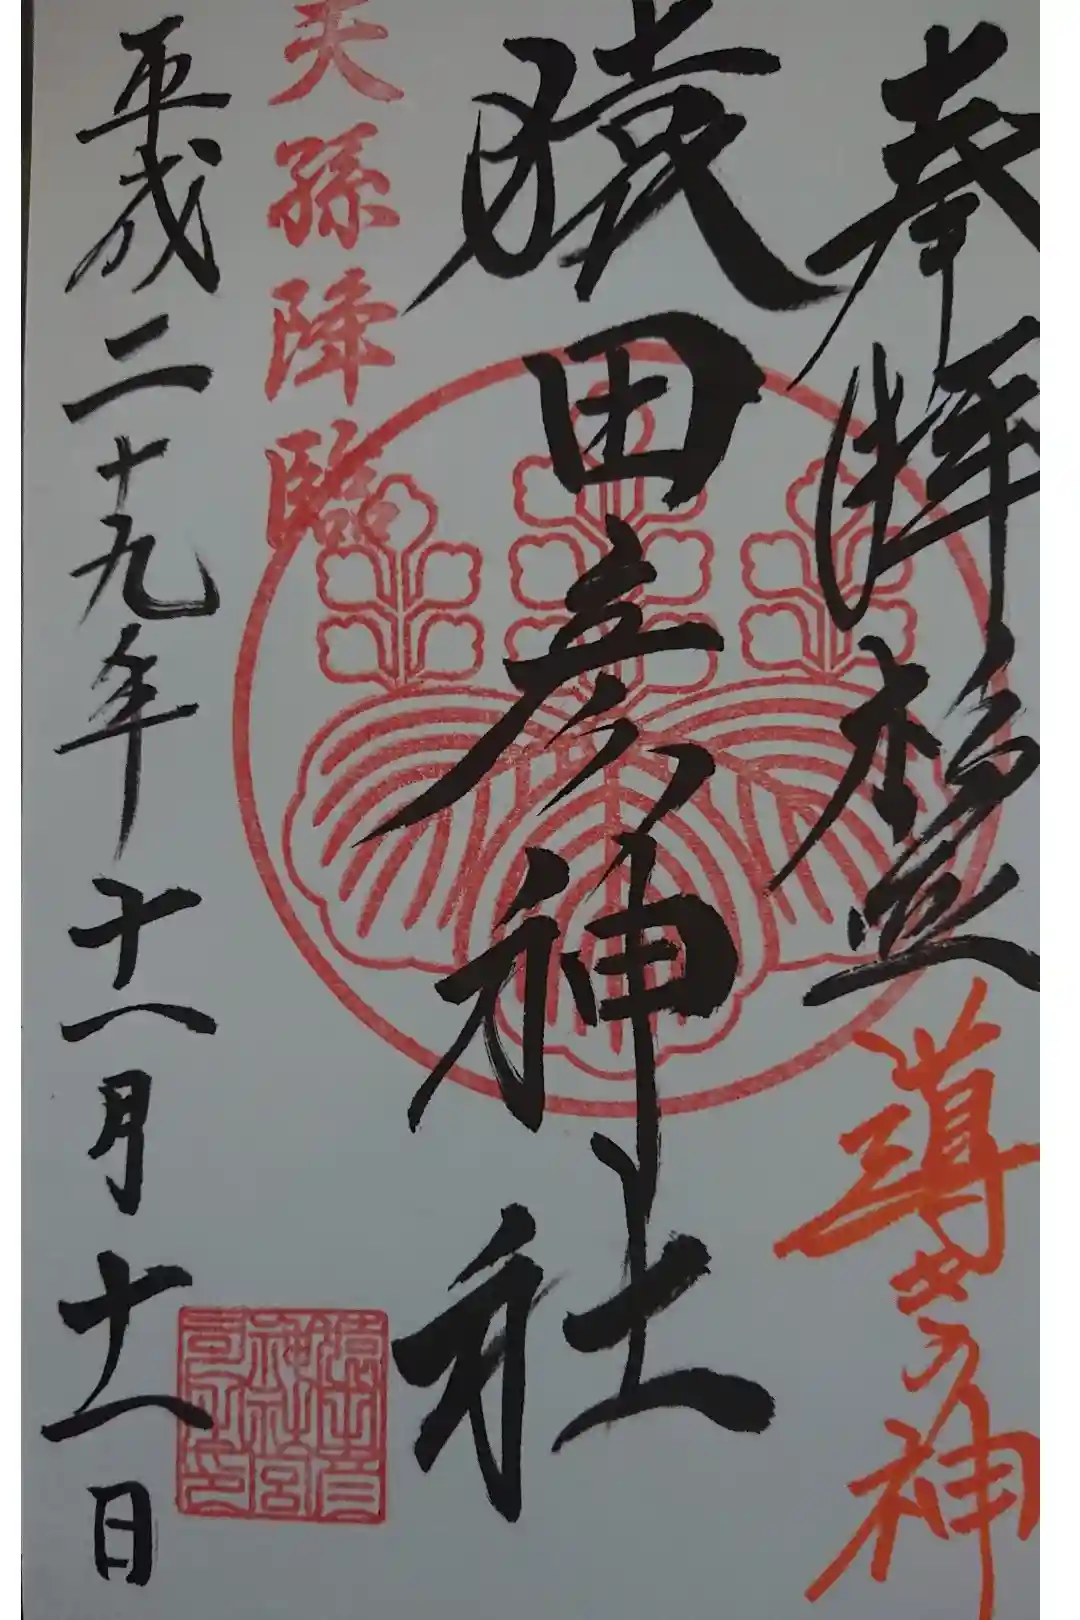 奉拝
導きの神
猿田彦神社
天孫降臨
平成二十九年十一月十一日
猿田彦
神社宮
司之印